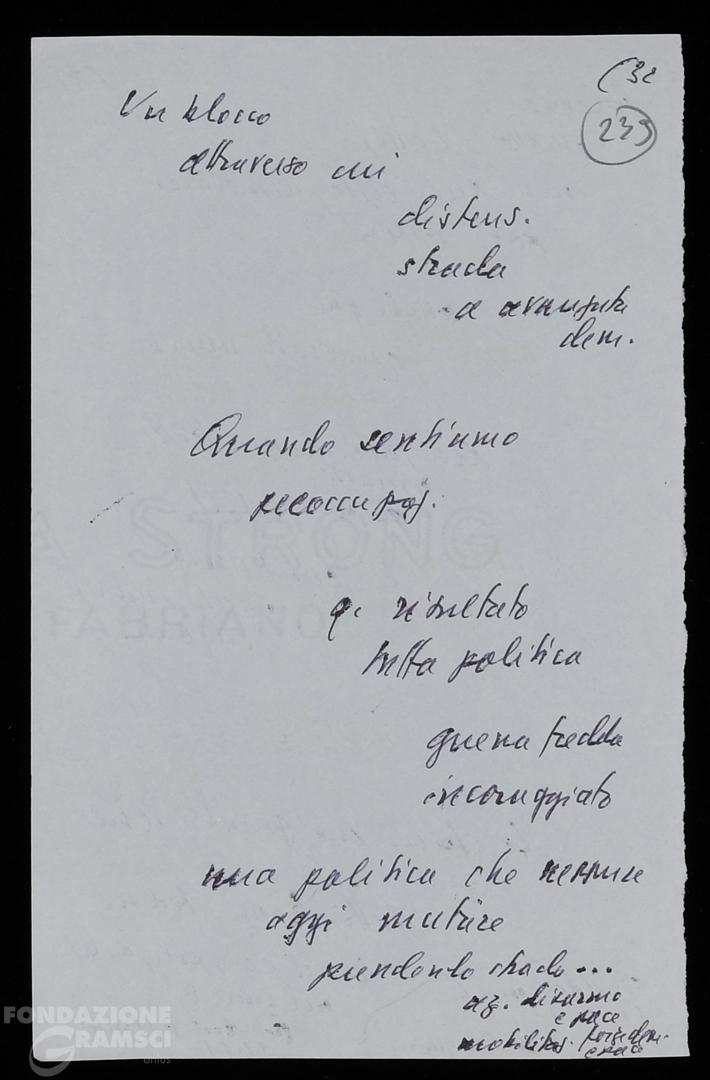 (32
239
Un blocco
attraverso cui
distens.
strada
a avanzata
dem.
Quando sentiamo
preoccupaz.
q. risultato
tutta politica
guerra fredda
incoraggiato
una politica che neppure
oggi mutare
prendendo strada...
az. disarmo
e pace
mobilitaz. forze dem.
e pace
A STRONG
FABRIANO
FONDAZIONE
GRAMSCI
onlus